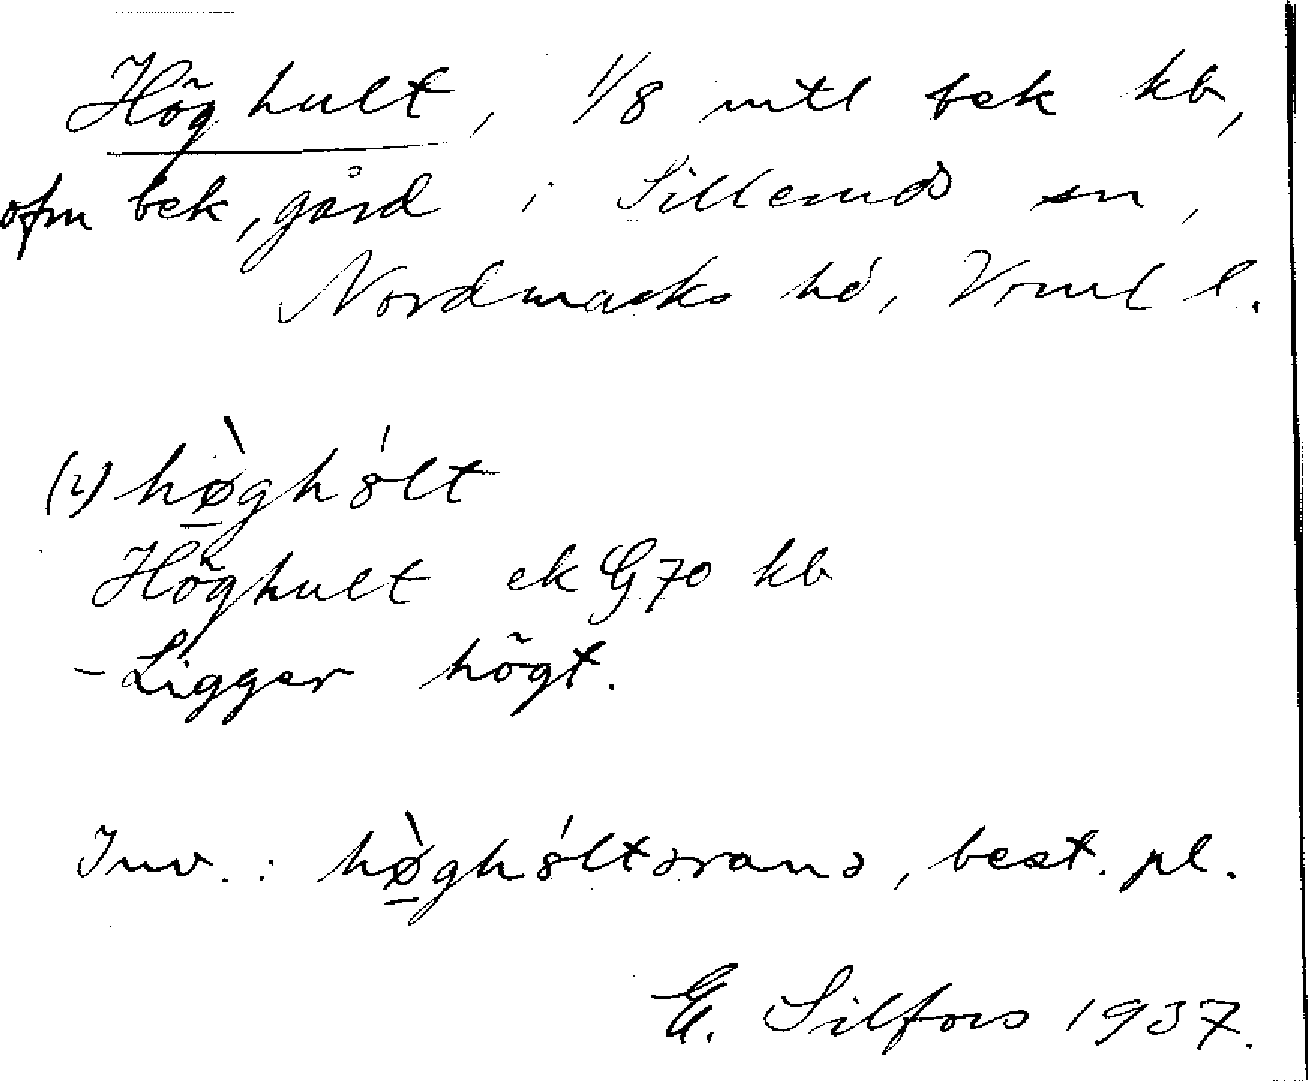 Höghult, 1/8 mtl bek kb,
ofm bek, gård i Silleruds sn,
Nordmarks hd, Vrml l.
(2) hø̀ghólt
Höghult ek G 70 kb
- Ligger högt.
Inv.: hø̀ghóltərana, best. pl.
E. Silfors 1937.